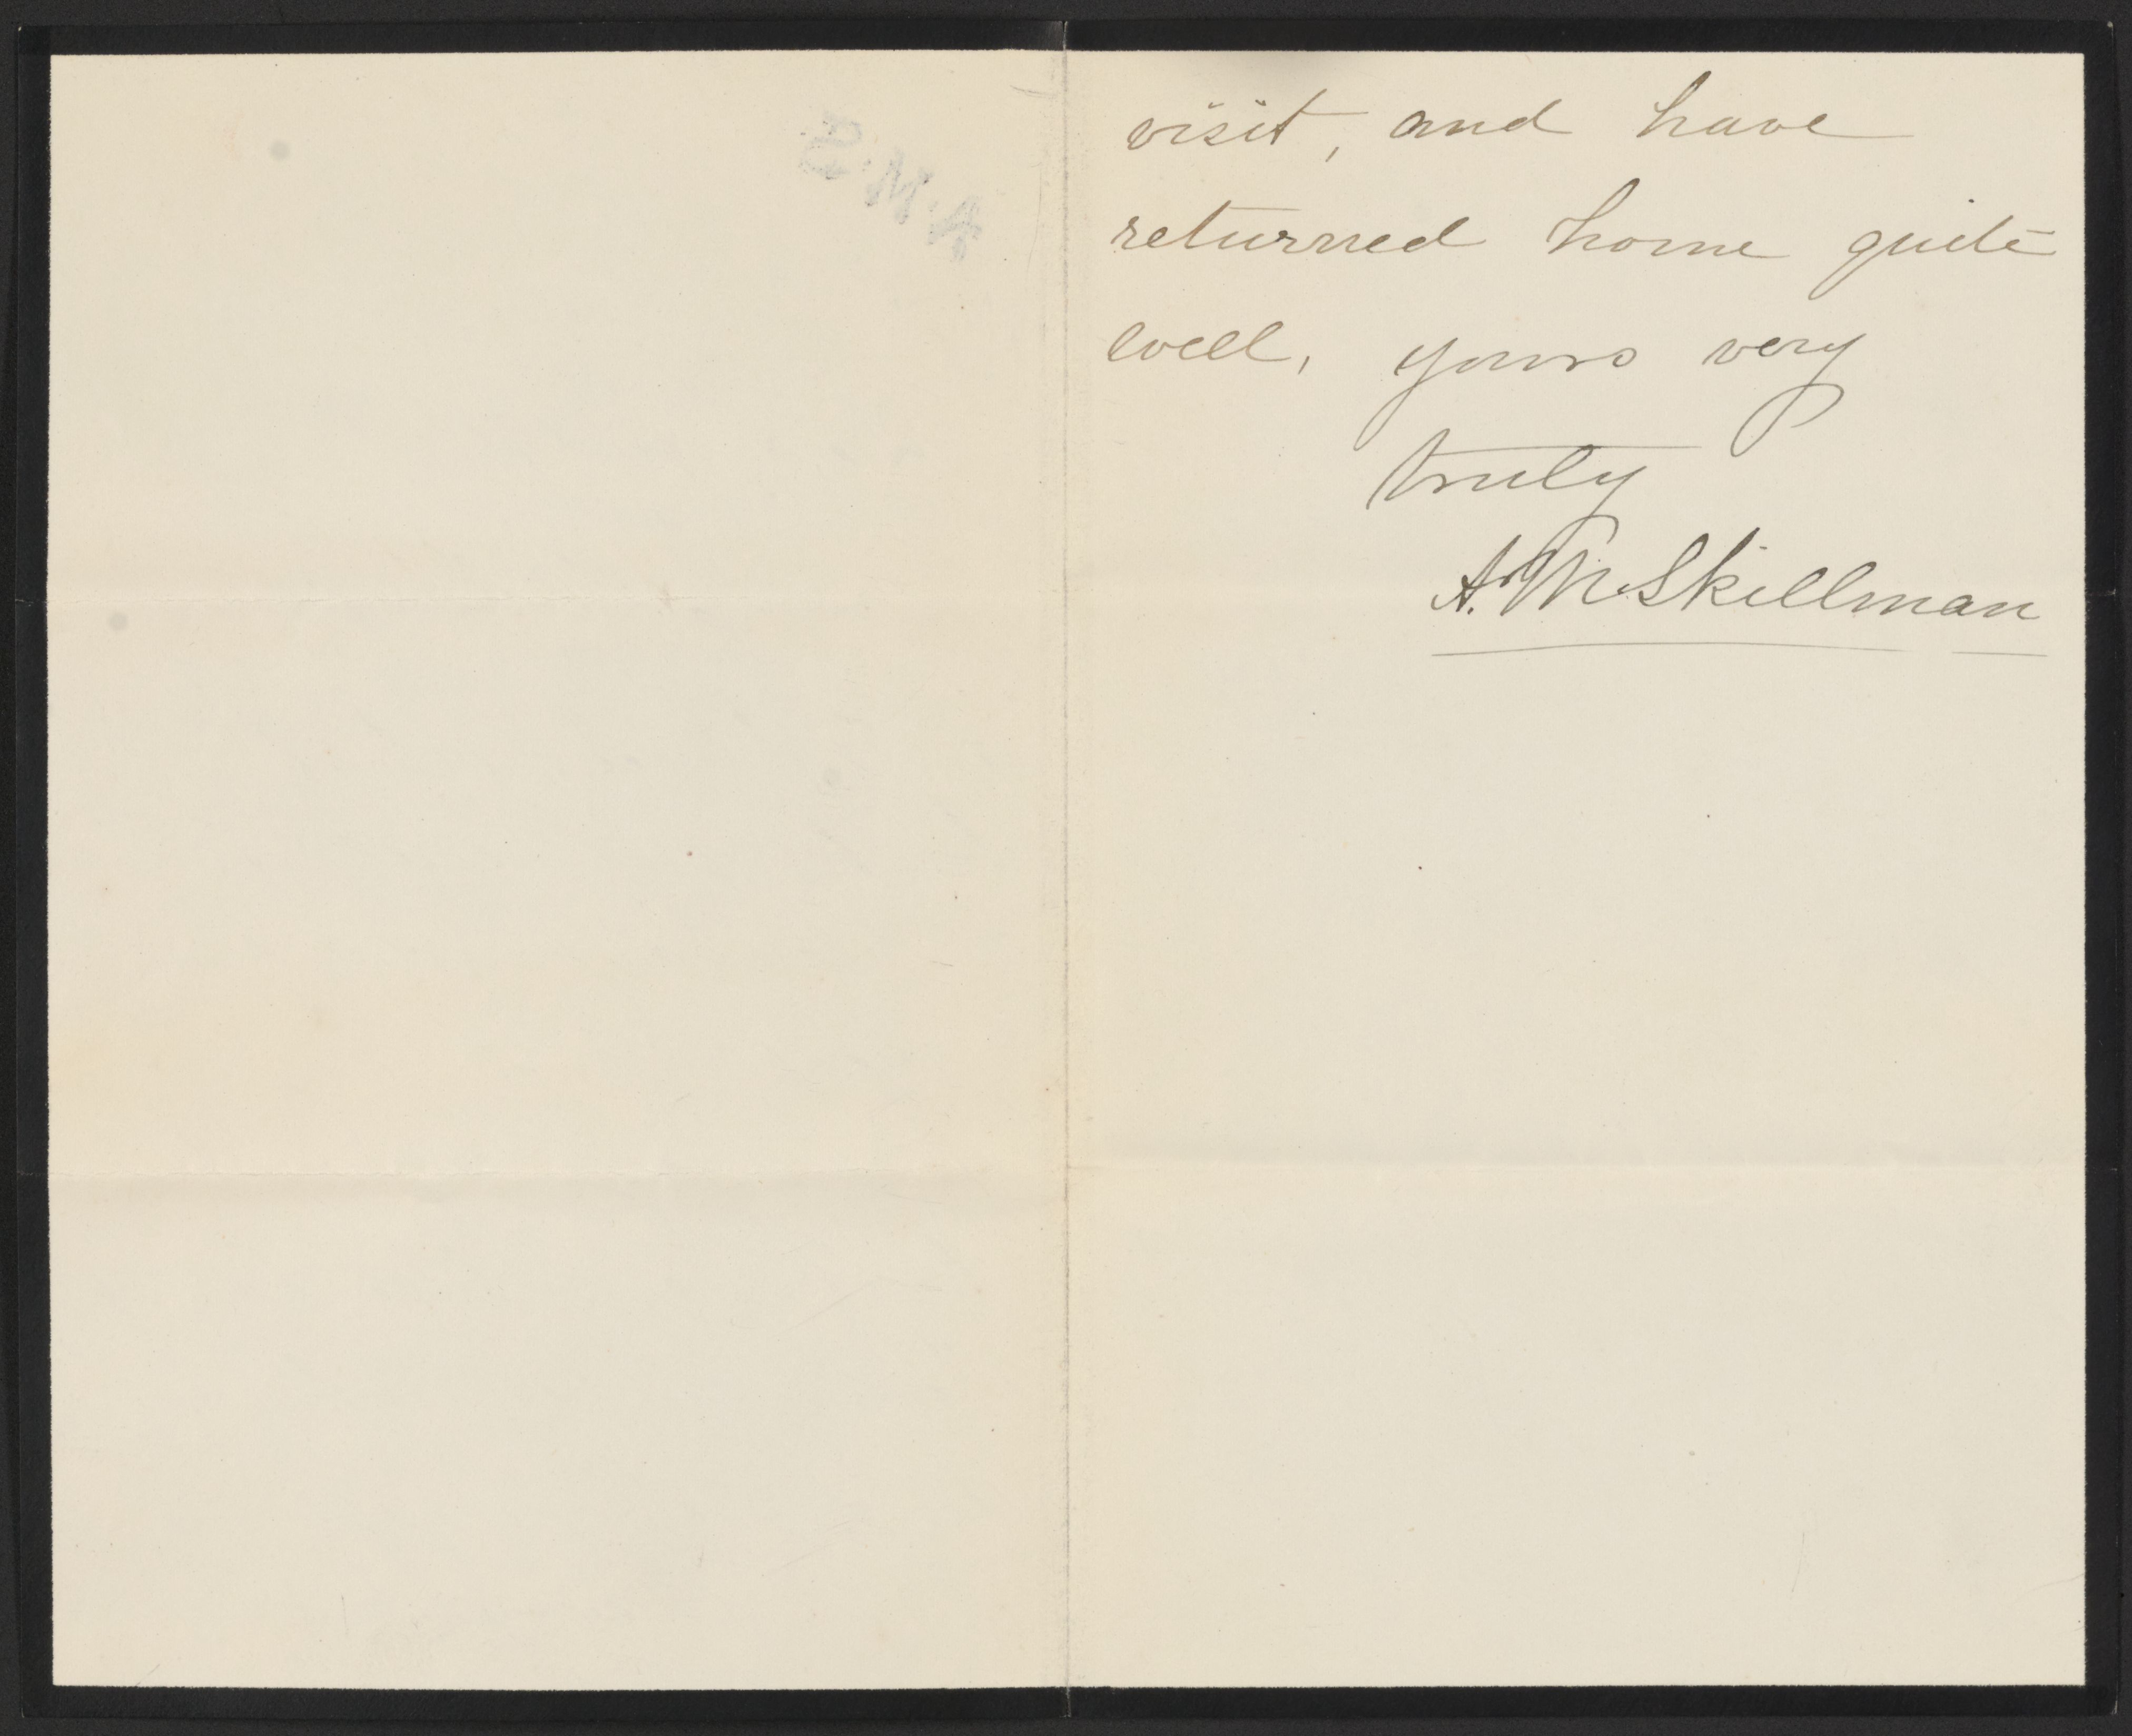 visit, and have
returned home quite
well, yours very
truly
A. M. Skillman
A.M.S